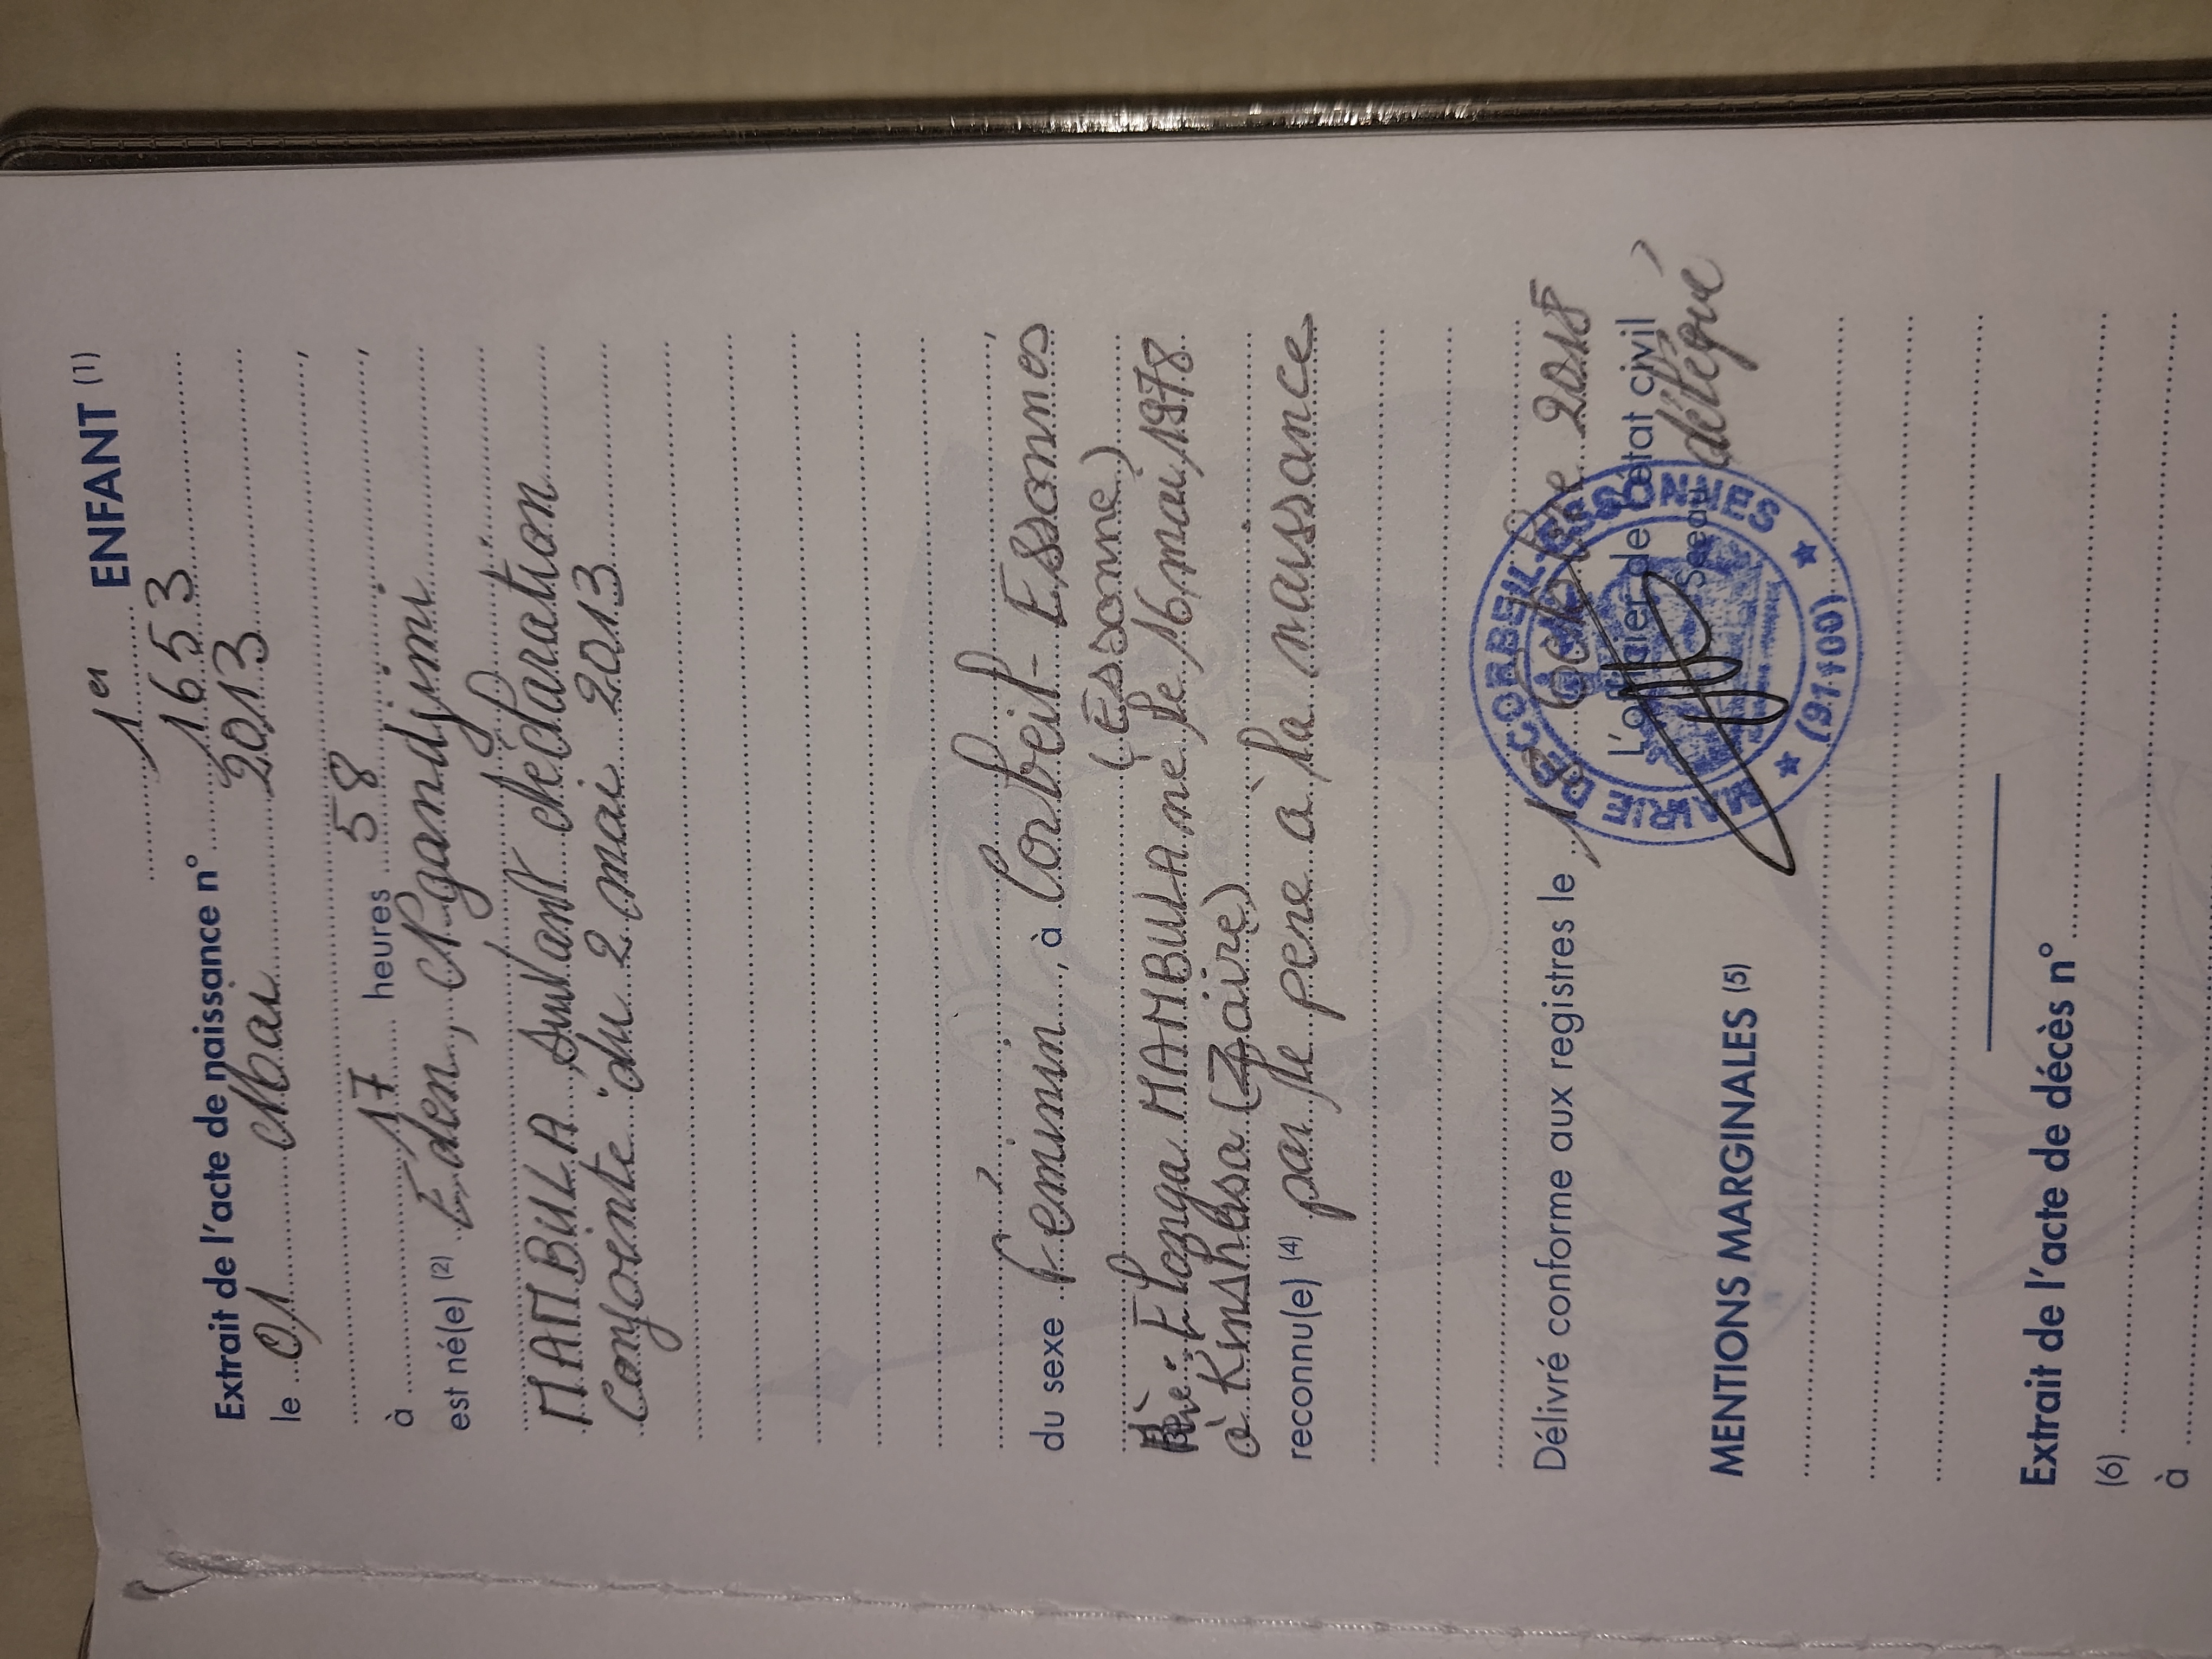 1er ENFANT (1)
Extrait de l'acte de naissance n° 1653
le 01 Mai 2013,
à 17 heures 58,
est né(e) (2) Eden, Ngandjimi
MAMBULA suivant déclaration
conjointe du 2 mai 2013
du sexe féminin, à Corbeil-Essonnes,
(Essonne)
Père : Elonga MAMBULA né le 16 mai 1978
à Kinshasa (Zaire)
reconnu(e) (4) par le père à la naissance
Délivré conforme aux registres le octobre 2015
L'officier de l'état civil
Sceau délégué
MAIRIE DE CORBEIL-ESSONNES
(91100)
MENTIONS MARGINALES (5)
Extrait de l'acte de décès n°
(6)
à